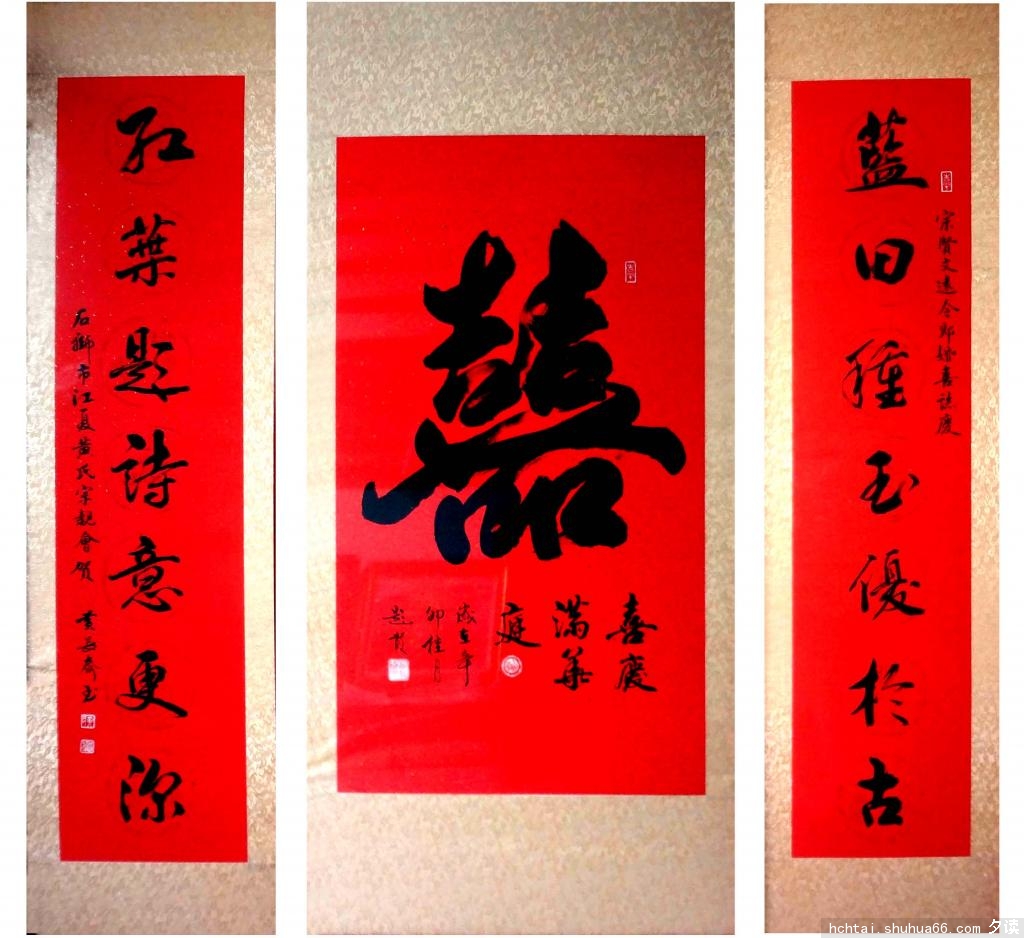 藍田種玉優於古
宗賢文遠令郎婚喜誌慶
囍
喜慶
滿華
庭
歲在
卯佳月
題賀
紅葉題詩意更深
石獅市江夏黃氏宗親會賀
hchtai.shuhua66.com 夕读